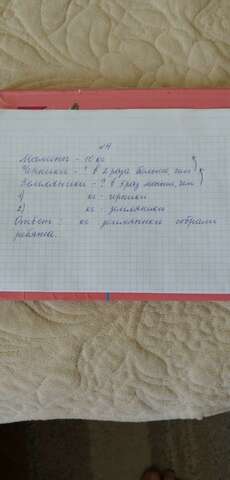 №4
Малины - 10 кг
Черники - ? в 2 раза больше, чем
Земляники - ? в 5 раз меньше, чем
1) кг - черники
2) кг - земляники
Ответ: кг земляники собрали
ребята.